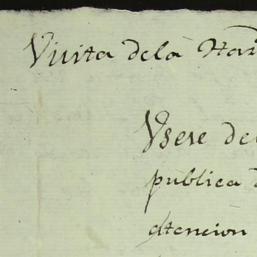 Visita dela Har
Vsese de
publica d
atencion